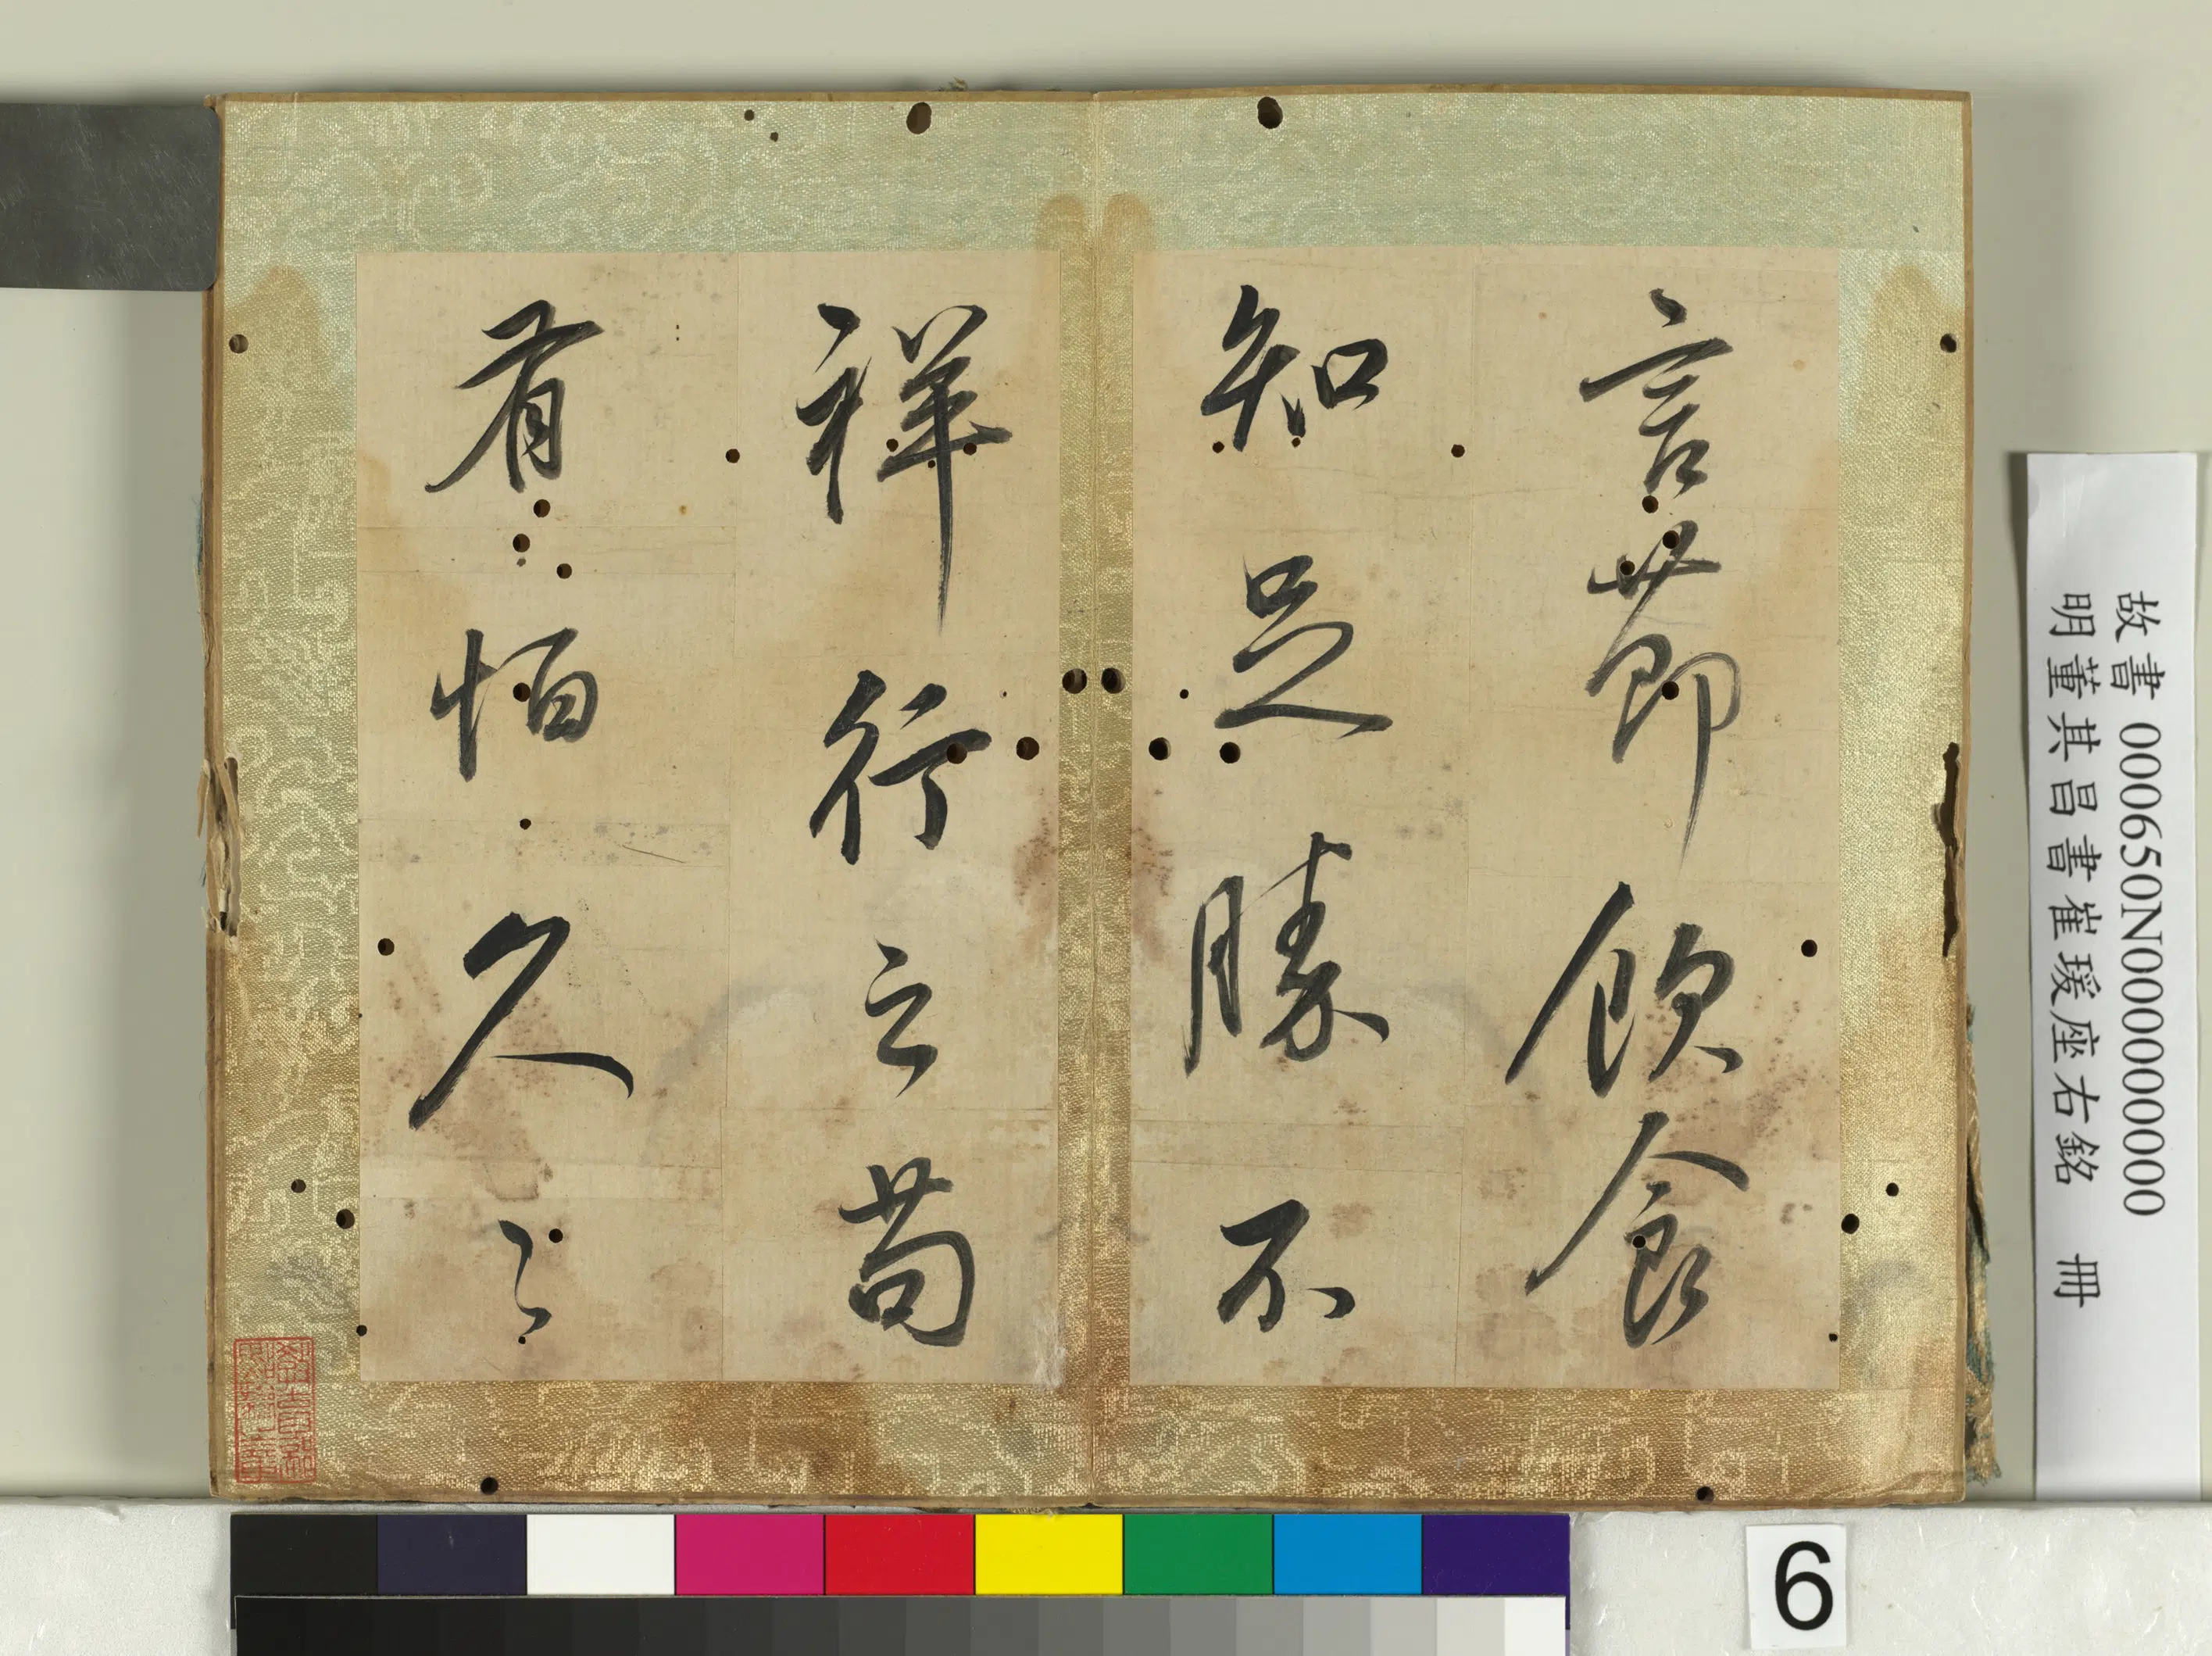 言節飲食
知足勝不
祥行之苟
有恒久〻
故書 000650N000000000
明董其昌書崔瑗座右銘 冊
6